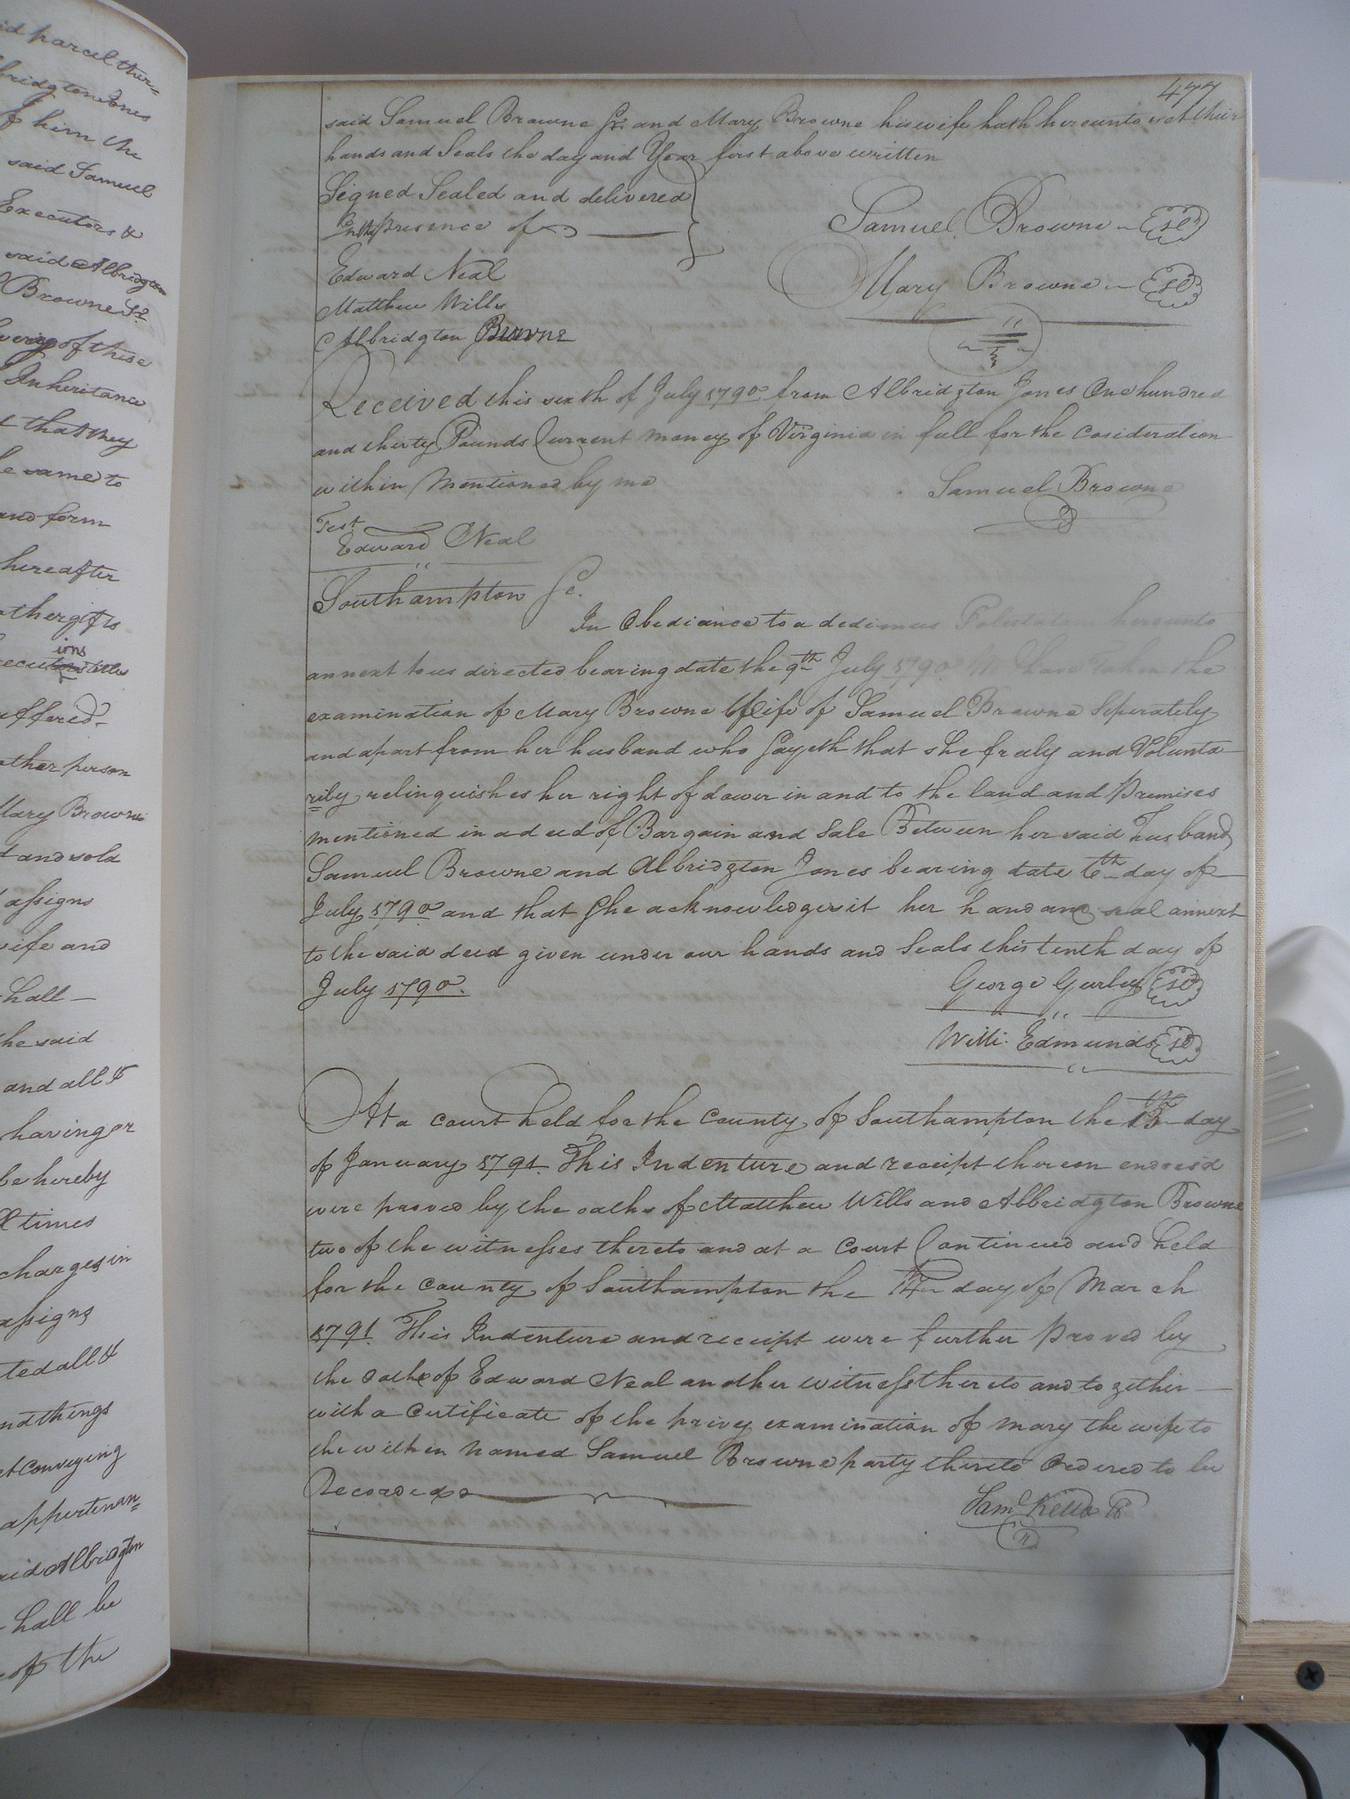 id parcel ther=
lbridgton Jones
of him the
said Samuel
Executors &
said Albridgton
Browne Sr
of these
Inheritance
t that they
he same to
and form
hereafter
other gifts
ions
uffered
other person
Mary Browne
d and sold
assigns
wife and
shall
he said
and all &
having or
be hereby
ll times
charges in
assigns
ted all &
nd things
t conveying
appertenan=
aid Albridgton
shall be
of the
477
said Samuel Browne Sr. and Mary Browne his wife hath hereunto set their
hands and Seals the day and Year first above written
Signed Sealed and delivered
In the presence of
Samuel Browne
Edward Neal
Mary Browne
Matthew Wills
Albridgton Browne
Received this sixth of July 1790 from Albridgton Jones One hundred
and thirty Pounds Current money of Virginia in full for the Cosideration
within Mentioned by me
Samuel Browne
Test
Edward Neal
Southampton Sc.
In Obediance to a dedimus Potestatem hereunto
annext to us directed bearing date the 9th July 1790 We have Taken the
examination of Mary Browne Wife of Samuel Browne Seperately
and apart from her husband who Sayeth that she fraly and Volunta
rily relinquishes her right of dower in and to the land and Premises
mentioned in a deed of Bargain and Sale Between her said Husband
Samuel Browne and Albridgton Jones bearing date 6th day of
July 1790 and that She acknowledges it her hand and seal annext
to the said deed given under our hands and Seals this tenth day of
July 1790.
George Gurley
Willi. Edmunds
At a court held for the County of Southampton the 13th day
of January 1791 This Indenture and receipt thereon endorsd
were proved by the oaths of Matthew Wills and Albridgton Browne
two of the witnesses thereto and at a Court Continued and held
for the county of Southampton the day of March
1791 This Indenture and receipt were further proved by
the oath of Edward Neal another witness thereto and together
with a Certificate of the privy examination of Mary the wife to
the within named Samuel Browne party thereto Ordered to be
Recorded
Saml Kello